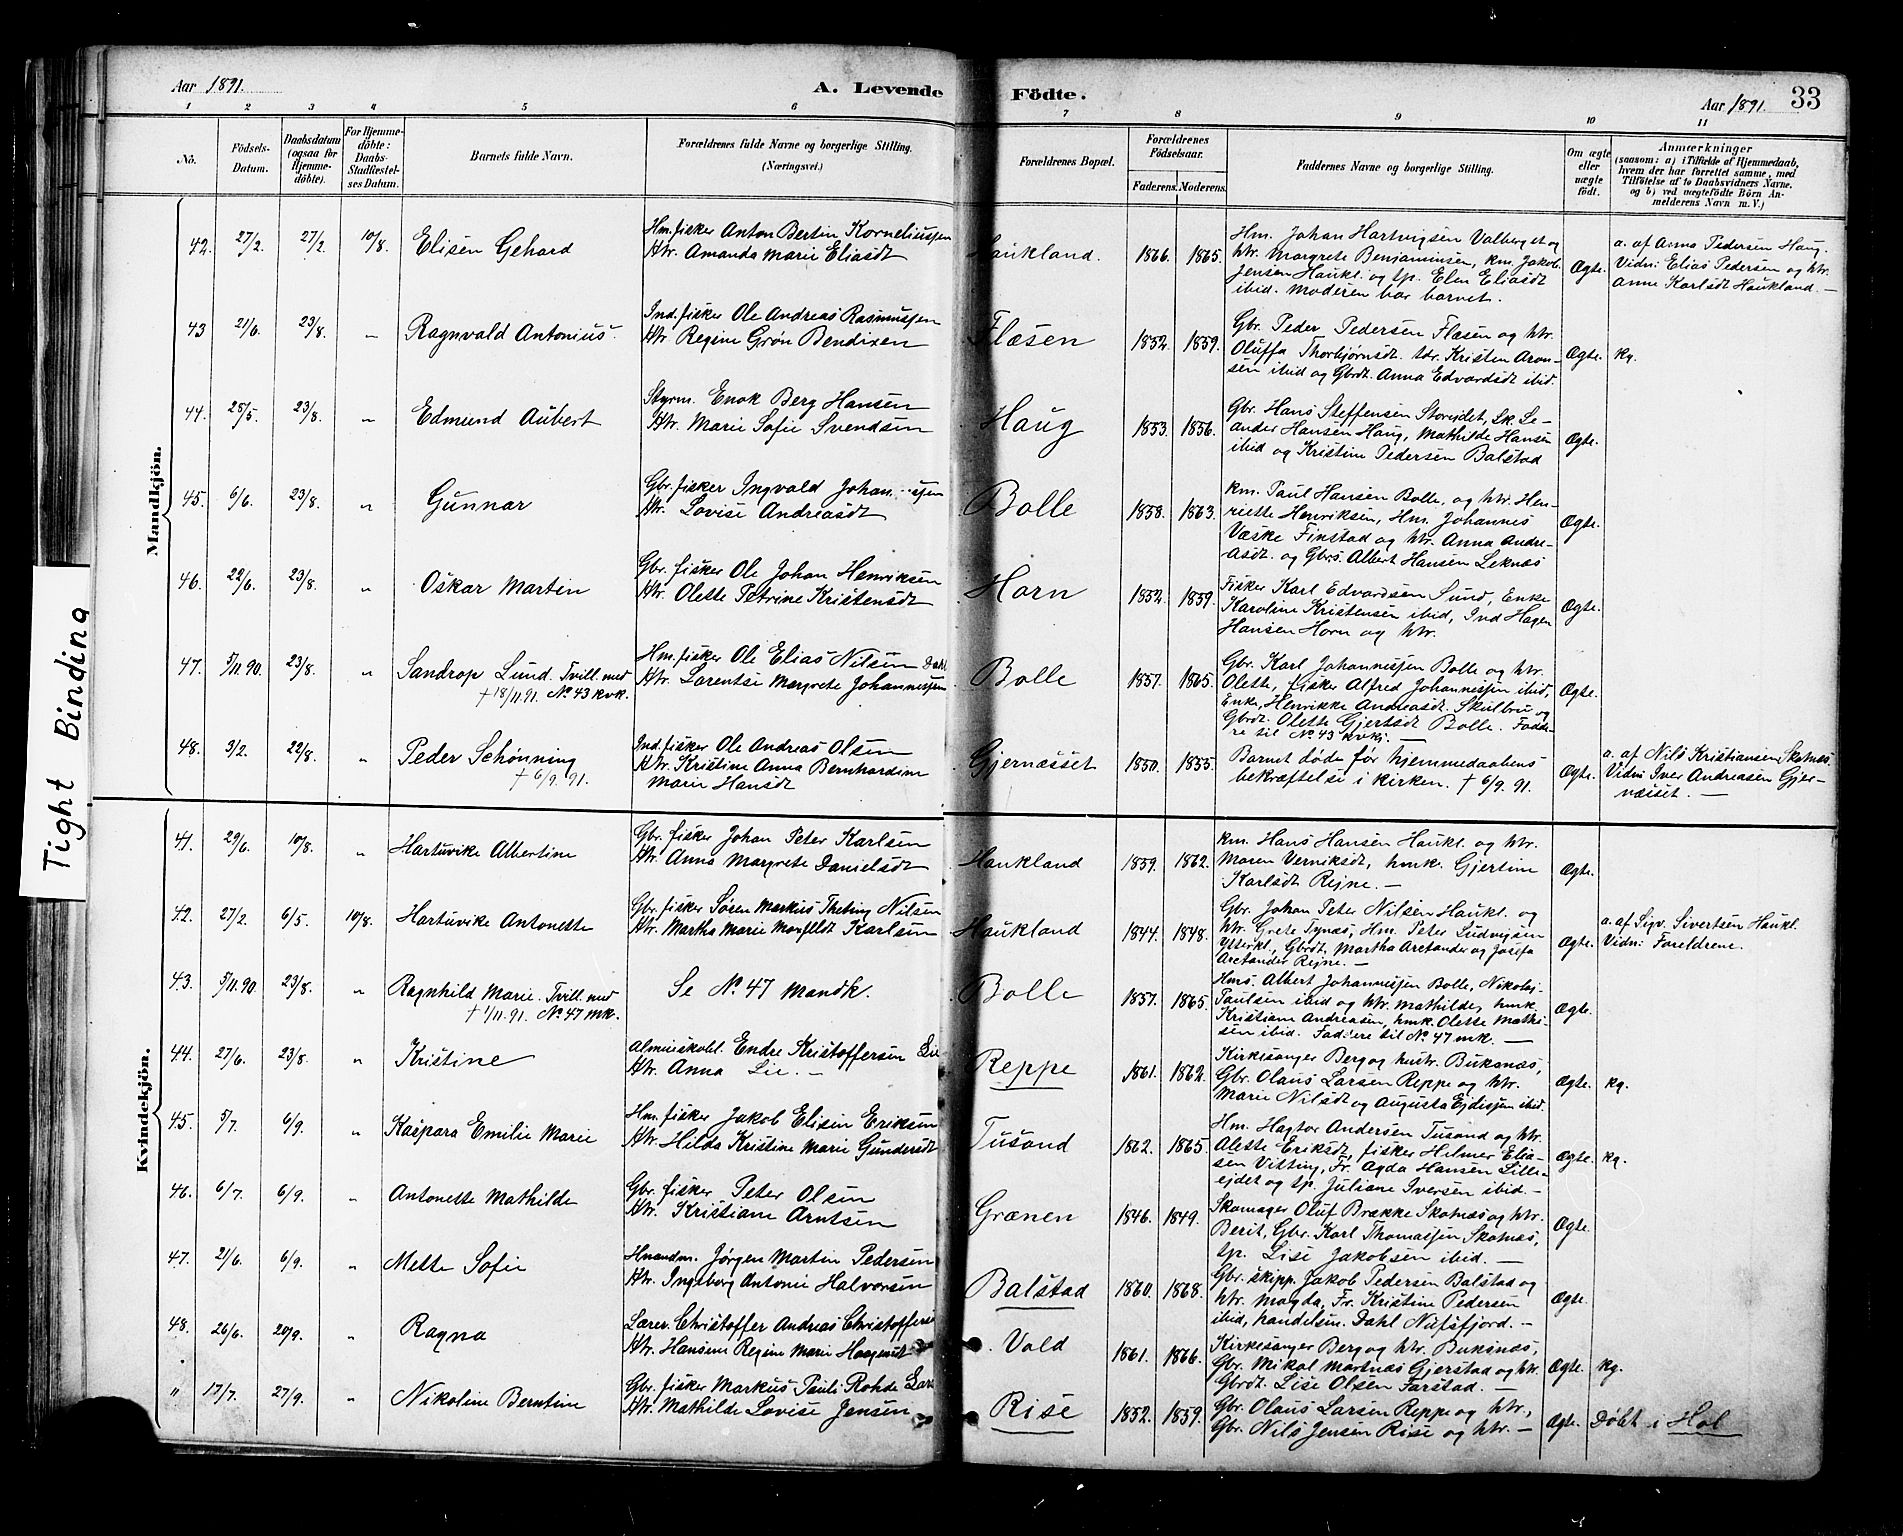 Aar 1891.
A. Levende
Födte.
Aar 1891. 33
1 2 3 4 5 6 7 8 9 10 11
No.
Födsels-
Datum.
Daabsdatum
(ogsaa for
Hjemme-
döbte).
For Hjemme-
döbte:
Daabs-
Stadfæstel-
ses Datum.
Barnets fulde Navn.
Forældrenes fulde Navne og borgerlige Stilling.
(Næringsvei.)
Forældrenes Bopæl.
Forældrenes
Födselsaar.
Faderens. Moderens.
Faddernes Navne og borgerlige Stilling.
Om ægte
eller
uægte
født.
Anmærkninger
(saasom: a) i Tilfælde af Hjemmedaab,
hvem der har forrettet samme, med
Tilföielse af to Daabsvidners Navne,
og b) ved uægtefödte Börn An-
melderens Navn m. V.)
Tight Binding
Mandkjön.
42. 27/2. 27/2 10/8. Elisen Gehard
Hm. fisker Anton Bertin Korneliussen
Htr. Amanda Marie Eliasdt
Haukland. 1866. 1865.
Hm. Johan Hartvigsen Valberg et og
htr. Margrete Benjaminsen, km. Jakob
Jensen Haukl. og tp. Elen Eliasdt
ibid. Moderen bar barnet.
Ægte.
a. af Anna Pedersen Haug.
Vidn: Elias Pedersen og htr.
Anne Karlsdt Haukland. —
43 21/6. 23/8. „ Ragnvald Antonius
Ind. fisker Ole Andreas Rasmussen
Htr. Regine Grøn Bendixen
Flæsen 1852. 1859.
Gbr. Peder Pedersen Flæsen og htr.
Oluffa Thorbjørnsdt. tdr. Kristen Aron-
sen ibid og Gbrdt. Anna Edvardsdt ibid.
Ægte. kg.
44. 25/5. 23/8. „ Edmund Aubert
Styrm. Enok Berg Hansen
Htr. Marie Sofie Svendsen
Haug 1853. 1856.
Gbr. Hans Steffensen Storeidet, Sk. Le-
ander Hansen Haug, Mathilde Hansen
ibid og Kristine Pedersen Balstad
Ægte.
45. 6/6. 23/8. „ Gunnar
Gbr. fisker Ingvald Johan sen
Htr. Lovise Andreasdt
Bolle 1858. 1863.
km. Paul Hansen Bolle, og htr. Hen-
riette Henriksen, Hm. Johannes
Væske Finstad og htr. Anna Andre-
asdt. og Gbrs. Albert Hansen Leknæs
Ægte.
46. 22/6. 23/8. „ Oskar Martin
Gbr. fisker Ole Johan Henriksen
Htr. Olette Petrine Kristensdt
Horn 1852. 1859.
Fisker Karl Edvardsen Sund, Enke
Karoline Kristensen ibid, Ind Hagen
Hansen Horn og htr.
Ægte.
47. 5/11.90. 23/8. „ Sandrop Lund. Tvill. med
† 18/11.91. No. 43 kvk.
Hm. fisker Ole Elias Nilsen Dahl
Htr. Larentse Margrete Johannessen
Bolle 1857. 1865.
Gbr. Karl Johannessen Bolle og htr.
Olette, fisker Alfred Johannessen ibid,
Enke, Henrikke Andreasdt. Skulbru og
Gbrdt. Olette Gjertsdt Bolle. Fadde-
re til No. 43 kvkj. —
Ægte.
48. 3/2. 22/8. „ Peder Schønning
† 6/9. 91.
Ind. fisker Ole Andreas Olsen
Htr. Kristine Anna Bernhardine
Marie Hansdt
Gjernæsset 1850. 1855.
Barnet døde før hjemmedaabens
bekræftelse i kirken. † 6/9. 91.
Ægte.
a. af Nils Kristiansen Skotnæs.
Vidn: Iver Andreasen Gjer-
næsset. —
Kvindekjön.
41. 29/6. 10/8. „ Hartuvike Albertine
Gbr. fisker Johan Peter Karlsen
Htr. Anna Margrete Danielsdt
Haukland 1859. 1862.
km. Hans Hansen Haukl. og htr.
Maren Verniksdt, hmk. Gjertine
Karlsdt Rejne. —
Ægte.
42. 27/2. 6/5. 10/8. Hartuvike Antonette
Gbr. fisker Søren Markus Theting Nilsen
Htr. Martha Marie Monfeldt Karlsen
Haukland 1844. 1848.
Gbr. Johan Peter Nilsen Haukl. og
htr. Grete Tynæs, Hm. Peter Ludvigsen
Ytterkl., Gbrdt. Martha Arctander og Josefa
Arctander Rejne. —
Ægte.
a. af Sigv. Sivertsen Haukl.
Vidn: Foreldrene.
43. 5/11.90 23/8. „ Ragnhild Marie. Tvill. med
† 1/11.91. No. 47 mk.
Se No. 47 Mandk.
Bolle 1857. 1865.
Hms. Albert Johannessen Bolle, Nikolaj
Paulsen ibid og htr. Mathilde, hmk.
Kristiane Andreasen, hmk. Olette Mathi-
sen ibid. Faddere til No. 47 mk. —
Ægte.
44. 27/6. 23/8. „ Kristine
Almueskobl. Endre Kristoffersen Lie
Htr. Anna Lie. —
Reppe 1861. 1862.
Kirkesanger Berg og hustr. Buksnæs,
Gbr. Olaus Larsen Reppe og htr.
Marie Nilsdt og Augusta Ejdissen ibid.
Ægte. kg.
45. 5/7. 6/9. „ Kaspara Emilie Marie
Hm. fisker Jakob Elisen Eriksen
Htr. Hilda Kristine Marie Gundersdt
Tusand 1862. 1865.
Hm. Hagtor Andersen Tusand og htr.
Alette Eriksdt, fisker Helmer Elia-
sen Vitting, Fr. Agda Hansen Lille-
ejdet og tp. Juliane Iversen ibid. —
Ægte. kg.
46. 6/7. 6/9. „ Antonette Mathilde
Gbr. fisker Peter Olsen
Htr. Kristiane Arntsen
Grænen 1846. 1849.
Skomager Oluf Brække Skotnæs og htr.
Berit, Gbr. Karl Thomassen Skotnæs,
tp. Lise Jakobsen ibid. —
Ægte.
47. 21/6. 6/9. „ Mette Sofie
Hmandm. Jørgen Martin Pedersen
Htr. Ingeborg Antonie Halvorsen
Balstad 1860. 1868.
Gbr. skipp. Jakob Pedersen Balstad og
htr. Magda, Fr. Kristine Pedersen
ibid, handelsm. Dahl Nufsfjord. —
Ægte.
48. 26/6. 20/9. „ Ragna
Lærer Christoffer Andreas Christoffersen
Htr. Hansene Regine Marie
Vold 1861. 1866.
Kirkesanger Berg og htr. Buksnæs,
Gbr. Mikal Mortnæs Gjerstad og htr.
Gbrdt. Lise Olsen Farstad. —
Ægte kg.
" 17/7. 27/9. „ Nikoline Berntine
Gbr. fisker Markus Pauli Rohde
Htr. Mathilde Lovise Jensen
Rise 1852. 1859.
Gbr. Olaus Larsen Reppe og htr.,
Gbr. Nils Jensen Rise og htr. —
Ægte. Døbt i Hol